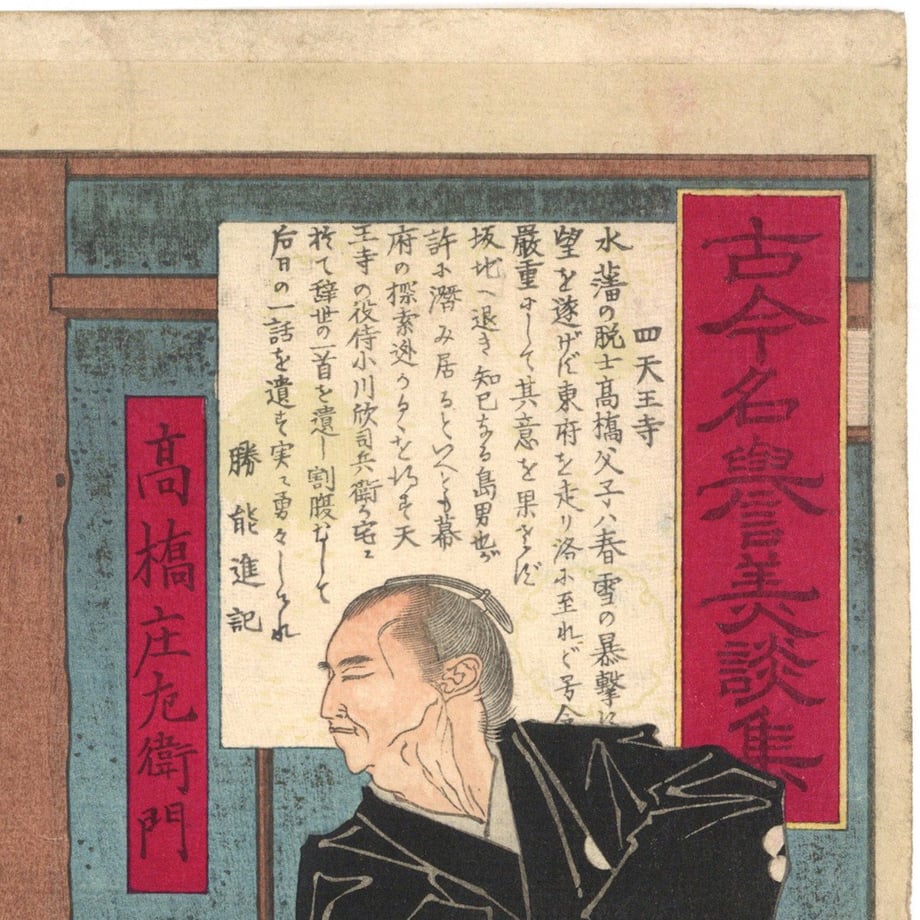 古今名譽美談集
四天王寺
水藩の脱士髙橋父子ハ春雪の暴撃に
望を遂げバ東府を走り洛に至れど号令
嚴重にして其意を果さず
坂地へ退き知己なる島男也が
許に潜み居るといへとも幕
府の探索
王寺の役侍小川欣司兵衛の宅に
於て辞世の一首を遺し割腹
后日の一話を遺す実に勇々しけれ
勝能進記
髙橋庄左衛門